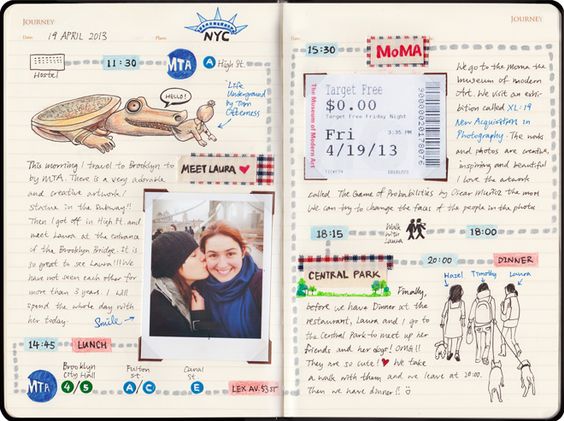 JOURNEY
Date: 19 APRIL 2013 Place:
NYC
Hostel
11:30
MTA A High St.
Life
Underground
by Tom
Otterness
HELLO!
This morning I travel to Brooklyn to
by MTA. There is a very adorable
and creative artwork/
statue in the subway!!
Then I got off in High St. and
meet Laura at the entrance
of the Brooklyn Bridge. It is
so great to see Laura!!! We
have not seen each other for
more than 3 years. I will
spend the whole day with
her today.
MEET LAURA
Smile
14:45 LUNCH
MTA
Brooklyn
City Hall
4/5
Fulton
St
A/C
Canal
St
E
LEX AV. 53 ST
JOURNEY
Date: Place:
15:30
MoMA
The Museum of Modern Art
Target Free
$0.00
Target Free Friday Night
Fri 3:35 PM
4/19/13
We go to the moma the
museum of modern
Art. We visit an exhi-
bition called XL: 19
New Acquisition in
Photography. The works
and photos are creative,
inspiring and beautiful
I love the artwork
called The Game of Probabilities by Oscar Muñoz the most
We can try to change the faces of the people in the photos
18:15
Walk
with
Laura
18:00
CENTRAL PARK
20:00 DINNER
Hazel Timothy Laura
Finally,
before we have Dinner at the
restaurant, Laura and I go to
the Central Park to meet up her
friends and her dogs! OMG!!
They are so cute! We take
a walk with them and we leave at 20:00.
Then we have dinner!!